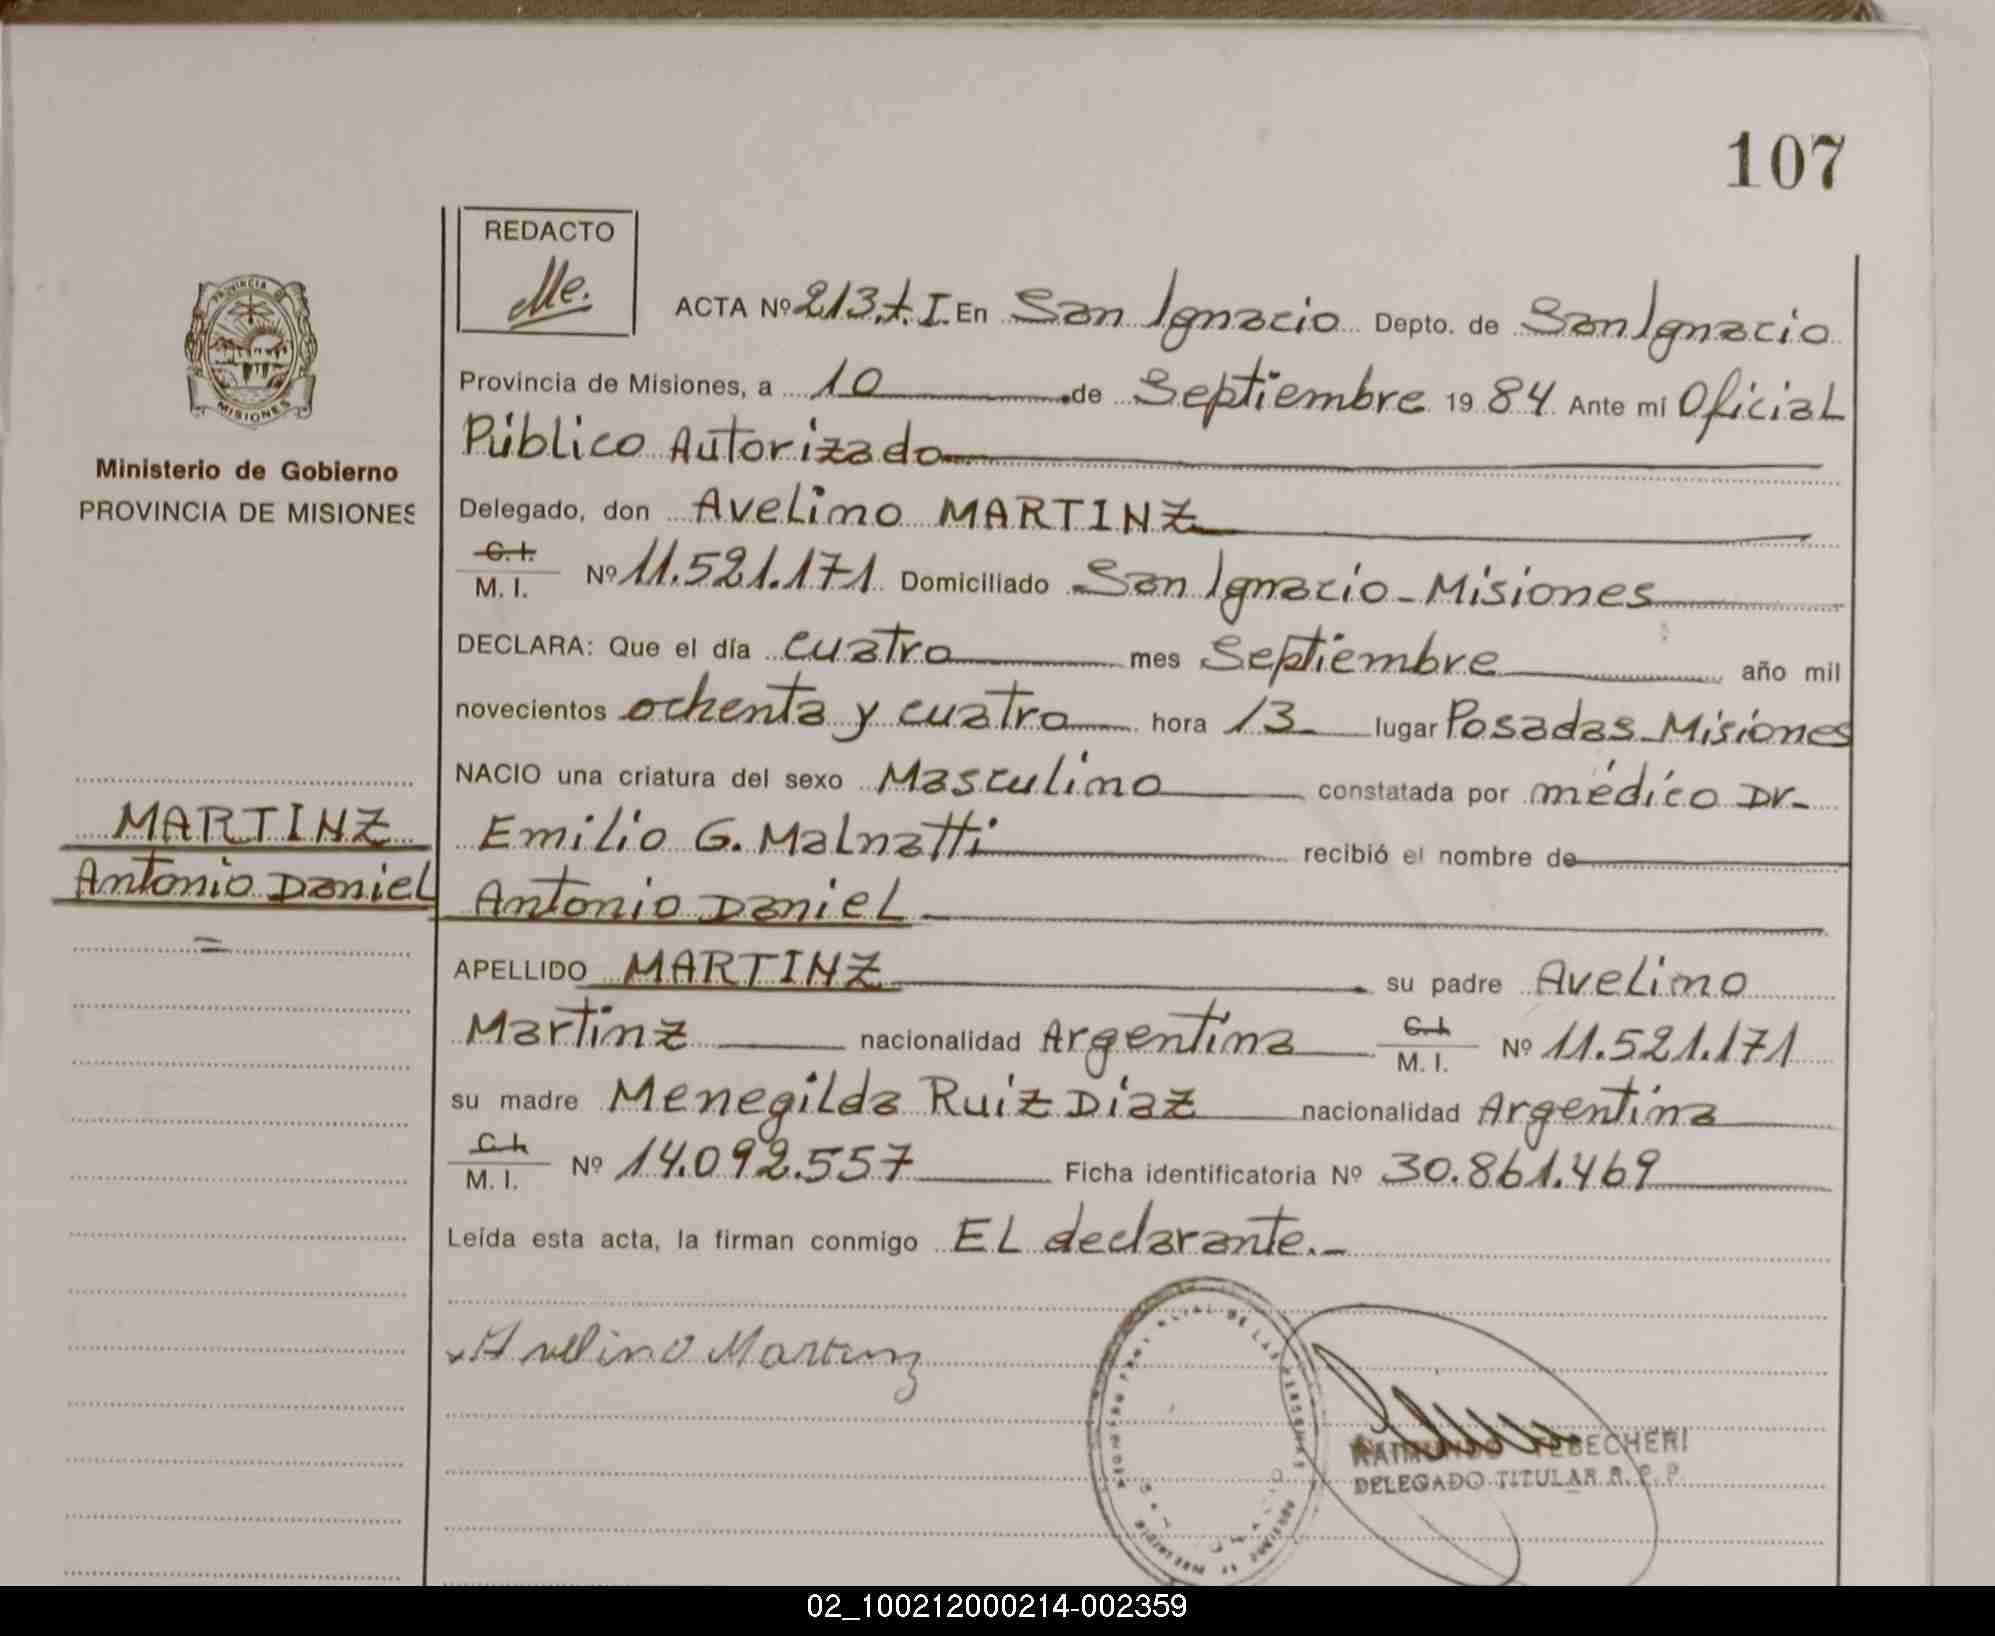 107
REDACTO
Me.
PROVINCIA DE
MISIONES
Ministerio de Gobierno
PROVINCIA DE MISIONES
ACTA Nº 213.t.I. En San Ignacio Depto. de San Ignacio
Provincia de Misiones, a 10 de Septiembre 1984 Ante mi Oficial
Público Autorizado
Delegado, don Avelino MARTINZ
C.I.
M. I. Nº 11.521.171 Domiciliado San Ignacio - Misiones
DECLARA: Que el día cuatro mes Septiembre año mil
novecientos ochenta y cuatro hora 13 lugar Posadas - Misiones
NACIO una criatura del sexo Masculino constatada por médico Dr.
Emilio G. Malnatti recibió el nombre de
MARTINZ
Antonio Daniel
=
Antonio Daniel
APELLIDO MARTINZ su padre Avelino
Martinz nacionalidad Argentina C.I. M. I. Nº 11.521.171
su madre Menegilda Ruiz Díaz nacionalidad Argentina
C.I.
M. I. Nº 14.092.557 Ficha identificatoria Nº 30.861.469
Leída esta acta, la firman conmigo EL declarante.-
Avelino Martinz
RAIMUNDO TEBECHERI
DELEGADO TITULAR R. P. P.
02_100212000214-002359